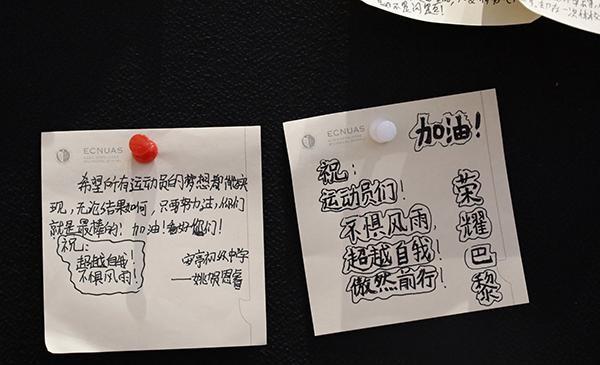 ECNUAS
希望所有运动员的梦想都能实
现,无论结果如何,只要努力过,你们
就是最棒的!加油!看好你们!
祝:
超越自我!
不惧风雨!
安亭初级中学
ECNUAS
加油!
祝:
运动员们!
不惧风雨,
超越自我!
傲然前行!
荣耀巴黎